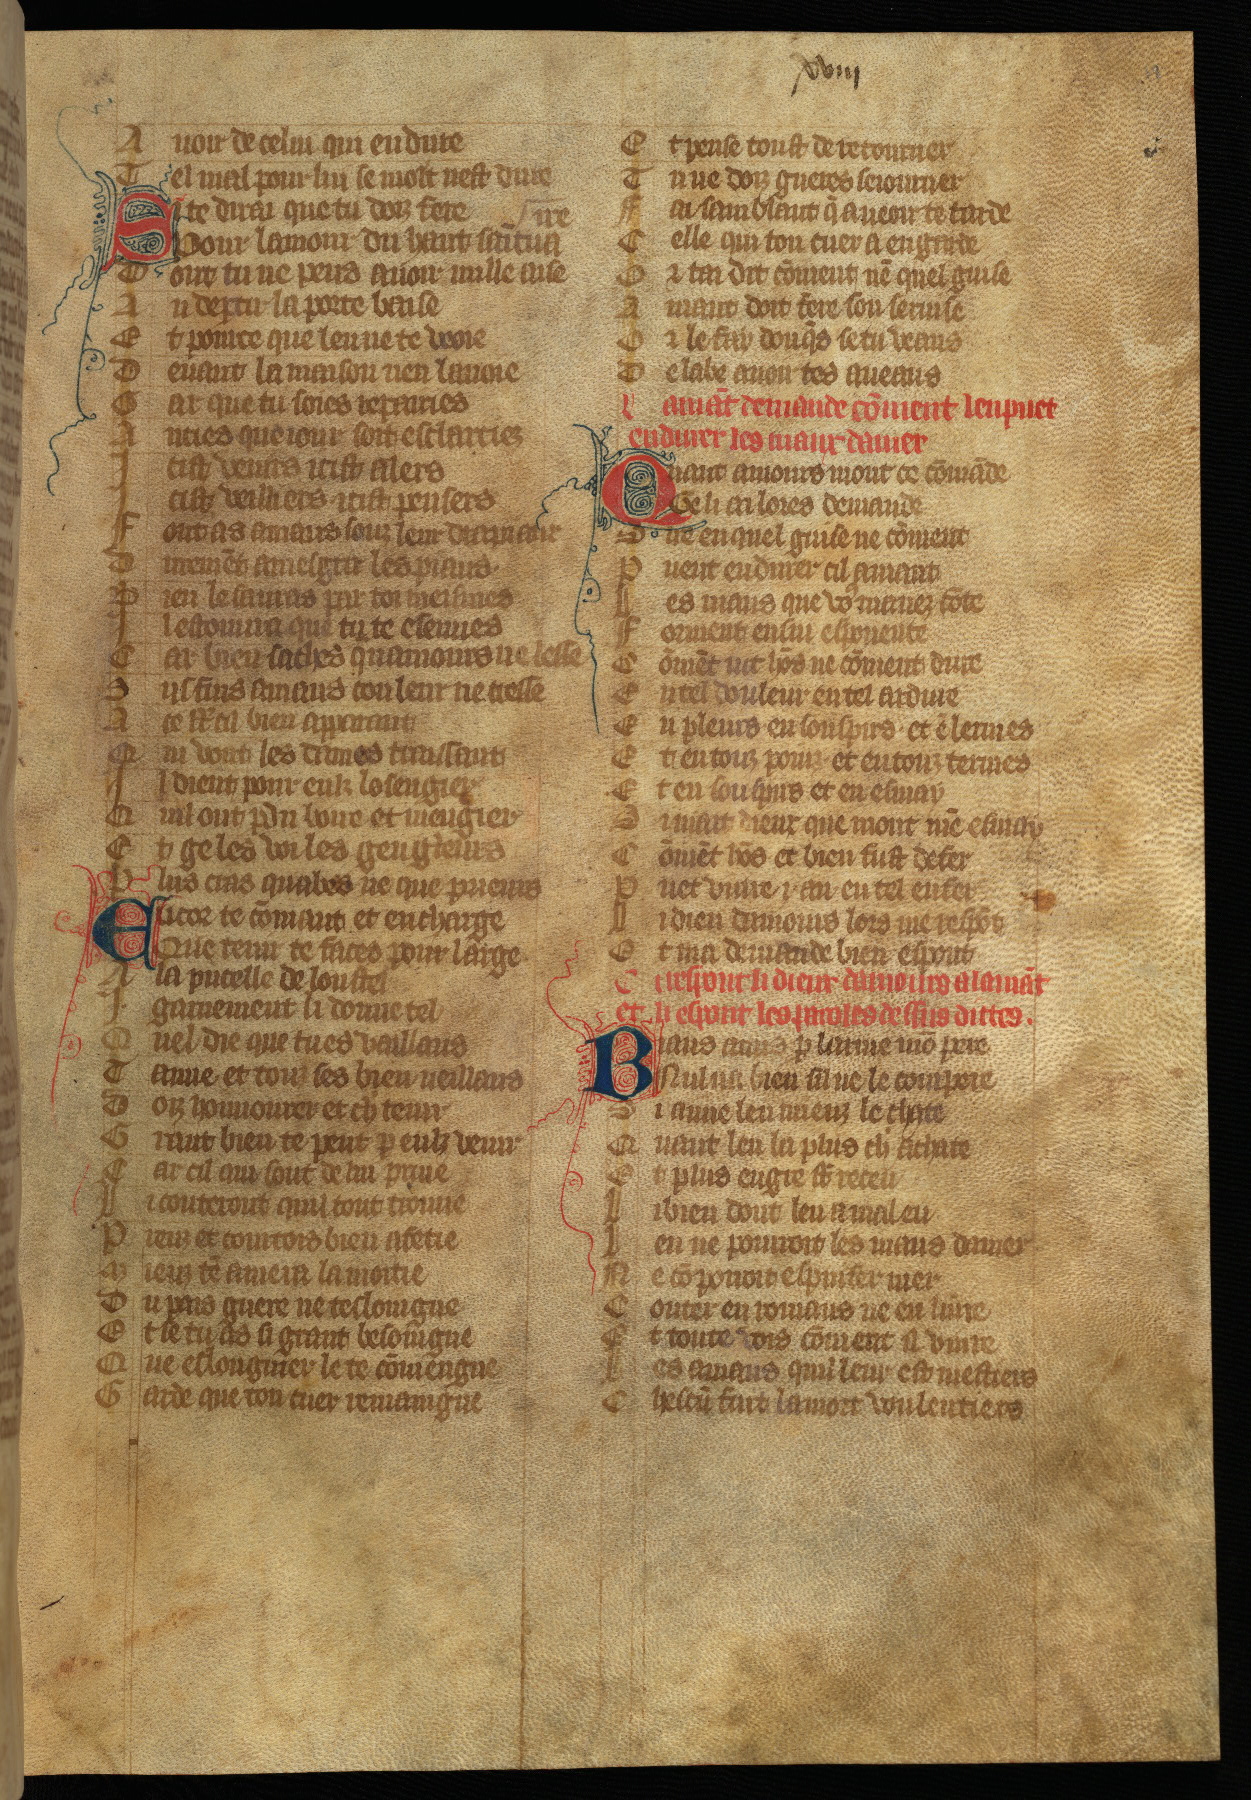 xviii
A uoir de celui qui endure
T el mal pour lui se molt nest dure
S i te dirai que tu doiz fere
Pour lamour du haut saintua ire
D ont tu ne peus auoir nulle aise
A u departir la porte baise
E t pource que len ne te voie
D euant la maison nen la voie
G ar que tu soies repairies
A ncies que iour soit esclarcies
I cist venirs icist alers
I cist veilliers icist pensers
F ont as amans souz leur
D uremēt amesgrir les piaus
B ien le sauras par toi meismes
I l estouura que tu te esemes
C ar bien saches quamours ne lesse
S us fins amans couleur ne cresse
A ce st cil bien apparant
Q ui vont les dames traissant
I l dient pour eulz losengier
Q uil ont pdu boire et mengier
E t ge les voi les gengleurs
P lus cras quabes ne que prieurs
E ncor te cōmant et encharge
Que tenir te faces pour large
A la pucelle de loustel
I garnement li donne tel
Q uel die que tu es vaillans
T amie et touz ses bien veillans
D oiz honnourer et ch tenir
G rant bien te peut p eulz venir
C ar cil qui sont de lui priue
L i conteront quil tont trouue
P reuz et courtois bien afetie
M ieuz tē amera la moitie
D u pais guere ne teslongne
E t se tu as si grant besoingne
Q ue eslougnier le te cōuiengne
G arde que ton cuer remaingne
E t pense toust de retourner
T u ne doiz gueres seiourner
F ai samblant q̄ a veoir te tarde
C elle qui ton cuer a en garde
O r tai dit cōment nē quel guise
A mant doit fere son seruise
O r le fay donq̄s se tu veaus
D e la be auoir tes aueaus
L amāt demande cōment len puet
endurer les maux damer
Q uant amours mout ce cōmāde
Ge li ai lores demande
S ire en quel guise ne cōment
P uent endurer cil amant
L es maus que vo mauez cōte
F orment en sui espouente
C ōmēt uit hōs ne cōment dure
E n tel douleur en tel ardure
E n pleurs en souspirs et ē lermes
E t en touz poins et en touz termes
E t en souspirs et en esmay
S i mait dieux que mont mē esmay
C ōmēt hōs et bien fust defer
P uet viure i an en tel enfer
L i dieu damours lors me respōt
E t ma demande bien espont
C i respont li dieux damours a lamāt
et li espont les paroles dessus dittes.
B iaus amis p lame mō pere
Nul na bien sil ne le compere
S i aime len mieuz le chate
Q uant len la plus ch achate
E t plus en gre st receu
L i bien dont len a mal eu
L en ne pourroit les maus damer
N e cō pouoit espuiser mer
C onter en romans ne en liure
E t toute vois cōment il viure
L es amans quil leur est mestiers
C hescū fuit la mort voulentiers